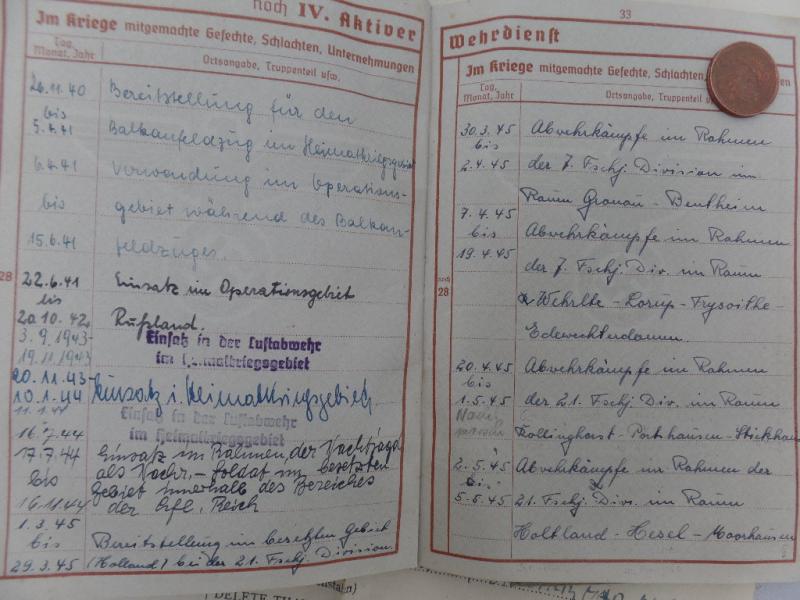 noch IV. Aktiver
Im Kriege mitgemachte Gefechte, Schlachten, Unternehmungen
Tag, Monat, Jahr
Ortsangabe, Truppenteil usw.
26.11.40 Bereitstellung für den
bis
5.4.41 Balkanfeldzug im Heimatkriegsgebiet
6.4.41 Verwendung im Operations-
bis gebiet während des Balkan-
15.6.41 feldzuges.
28
22.6.41 Einsatz im Operationsgebiet
bis
20.10.42 Rußland.
3.9.1943- Einsatz in der Luftabwehr
19.11.1943 im Heimatkriegsgebiet
20.11.43- Einsatz i. Heimatkriegsgebiet.
10.1.44
11.1.44 Einsatz in der Luftabwehr
16.7.44 im Heimatkriegsgebiet
17.7.44 Einsatz im Rahmen der Nachtjagd
bis als Nachr.-Soldat im besetzten
Gebiet innerhalb des Bereiches
16.11.44 der Lfl. Reich
1.3.45
bis Bereitstellung im besetzten Gebiet
29.3.45 (Holland) bei der 21. Fschj. Division.
33
Wehrdienst
Im Kriege mitgemachte Gefechte, Schlachten,
Tag, Monat, Jahr
Ortsangabe, Truppenteil
30.3.45 Abwehrkämpfe im Rahmen
bis
2.4.45 der 7. Fschj. Division im
Raum Gronau - Bentheim
7.4.45
bis Abwehrkämpfe im Rahmen
19.4.45
der 7. Fschj. Div. im Raum
noch 28
Wehrlte - Lorup - Frysoithe -
Edewechterdamm.
20.4.45 Abwehrkämpfe im Rahmen
bis
1.5.45 der 21. Fschj. Div. im Raum
Kollinghorst - Potshausen - Stickhausen
2.5.45 Abwehrkämpfe im Rahmen der
bis
5.5.45 21. Fschj. Div. im Raum
Holtland - Hesel - Moorhausen